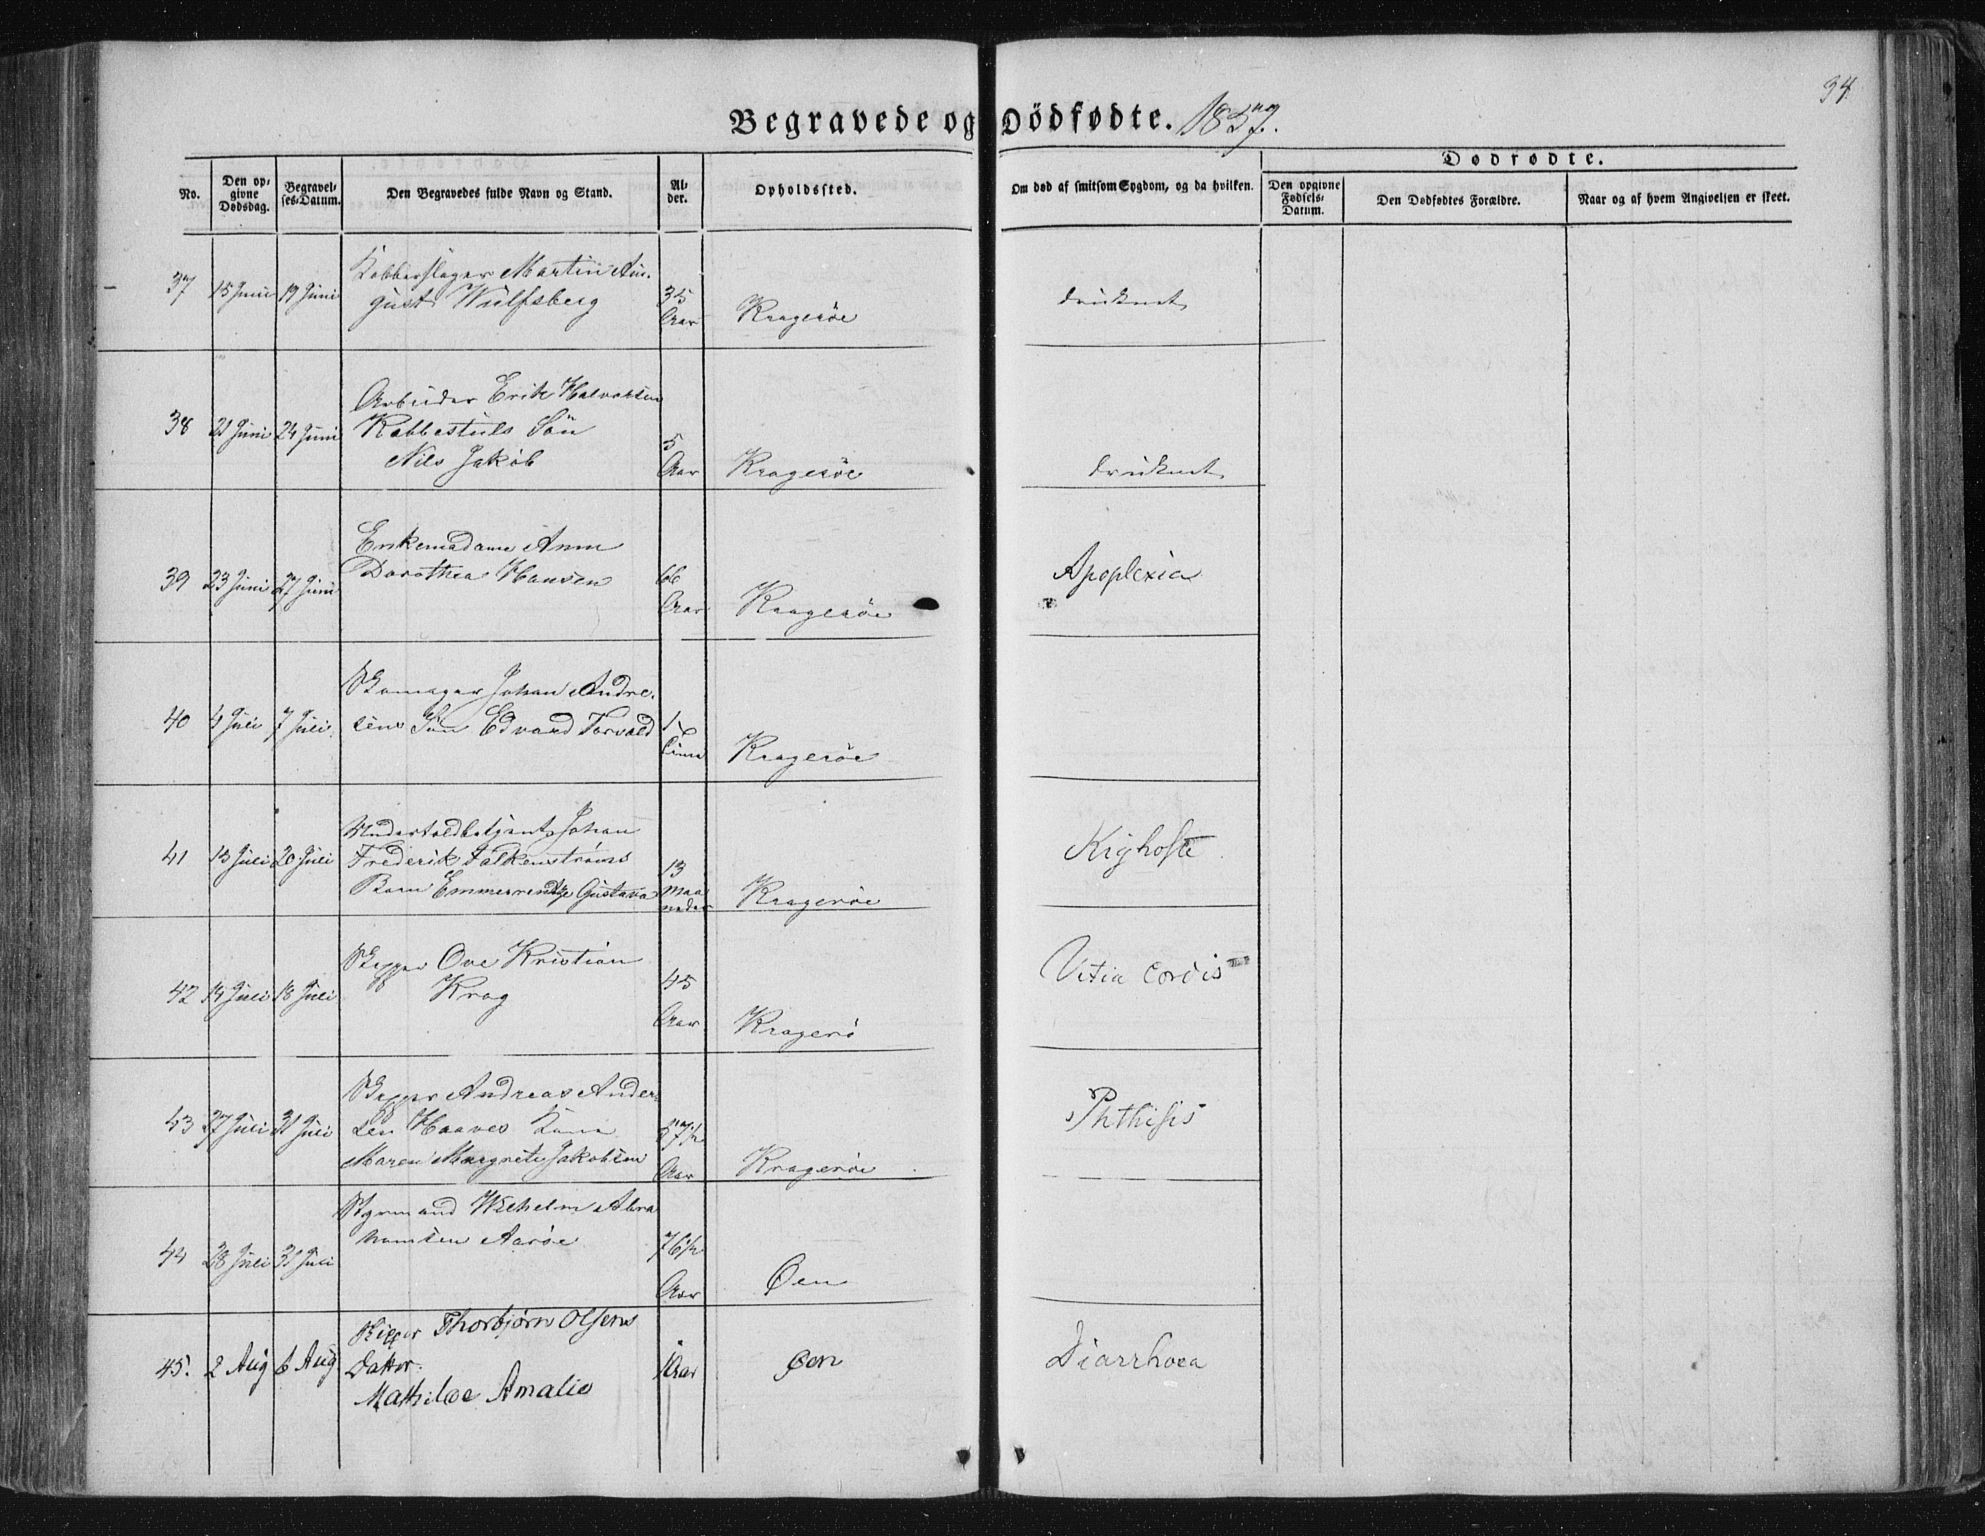 94
Begravede og Dödfødte. 1857.
No.
Den op-
givne
Dødsdag.
Begravel-
ses-Datum.
Den Begravedes fulde Navn og Stand.
Al-
der.
Opholdssted.
Om død af smitsom Sygdom, og da hvilken.
Dødfødte.
Den opgivne
Fødsels-
Datum.
Den Dødfødtes Forældre.
Naar og af hvem Angivelsen er skeet.
37 15 Juni 19 Juni Kobberslager Martin Au-
gust Wulfsberg 35
Aar Kragerøe druknet
38 21 Juni 24 Juni Arbeider Erik Halvorsen
Kabbestuls Søn
Nils Jakob 5
Aar Kragerøe druknet
39 23 Juni 27 Juni Enkemadame Anne
Dorothea Hansen 66
Aar Kragerøe Apoplexia
40 4 Juli 7 Juli Skomager Johan Andre-
sens Søn Edvard Torvald 1
Kragerøe
41 13 Juli 20 Juli Undertoldbetjent Johan
Frederik Falkenstrøms
Barn Emmerentze Gustava 13
Maa
neder Kragerøe Kighoste
42 14 Juli 18 Juli Skipper Ove Kristian
Krag 45
Aar Kragerø Vitia cordis
43 27 Juli 31 Juli Skipper Andreas Ander-
sen Haaves Kone
Maren Margrete Jakobsen 57½
Aar Kragerøe Phthisis
44 28 Juli 31 Juli Styrmand Wilhelm Abra
hamsen Aarøe 76½
Aar Øen
45. 2 Aug 6 Aug. Skipper Thorbjørn Olsens
Datter
Mathilde Amalie 1 Aar Øen Diarrhoea